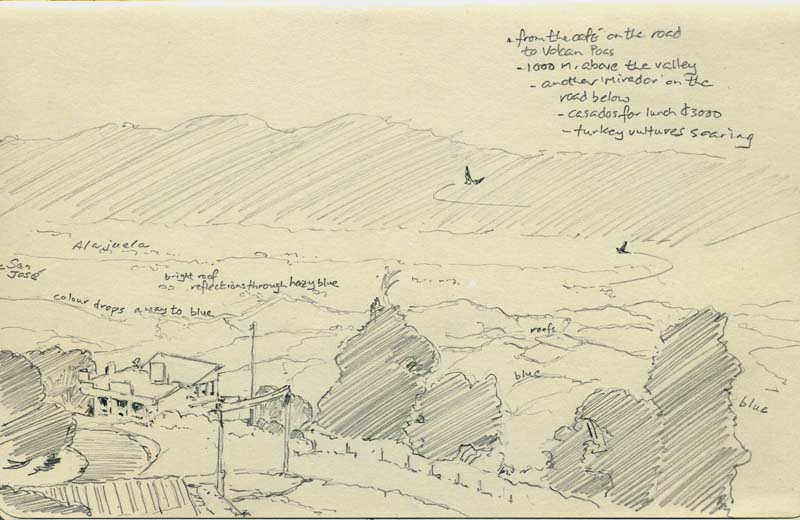 from the café on the road
to Volcan Poas
- 1000 m. above the valley
- another 'Mirador' on the
road below
- casados for lunch ₡3000
- turkey vultures soaring
Alajuela
San
José
bright roof
reflections through hazy blue
colour drops away to blue
roofs
blue
blue